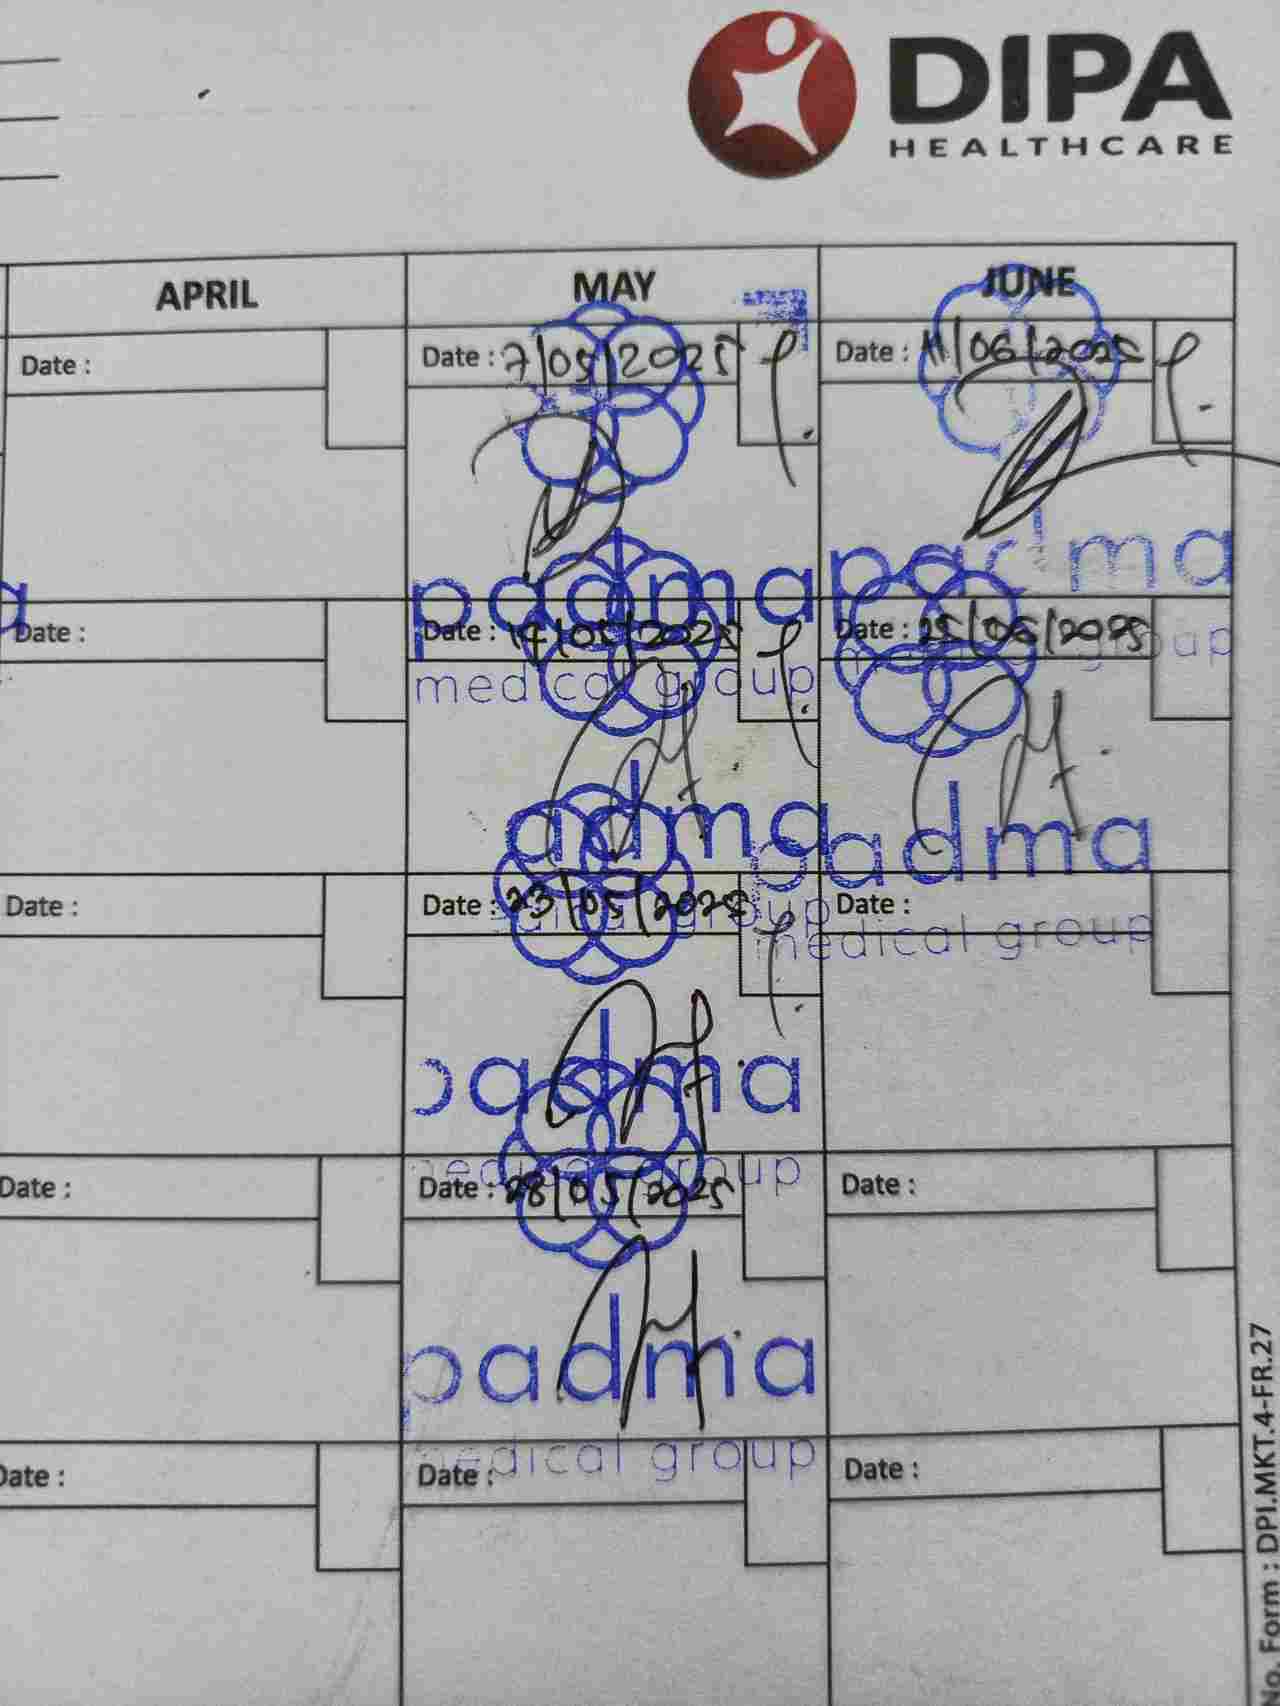 DIPA
HEALTHCARE
APRIL MAY JUNE
Date : Date : 7/05/2025 Date : 11/06/2025
padma padma
Date : Date : 14/05/2025 Date : 25/06/2025
medical group medical group
adma padma
Date : Date : 23/05/2025 Date :
group medical group
padma
Date : Date : 28/05/2025 Date :
medical group
padma
Date : Date : Date :
medical group
No. Form : DPI.MKT.4-FR.27